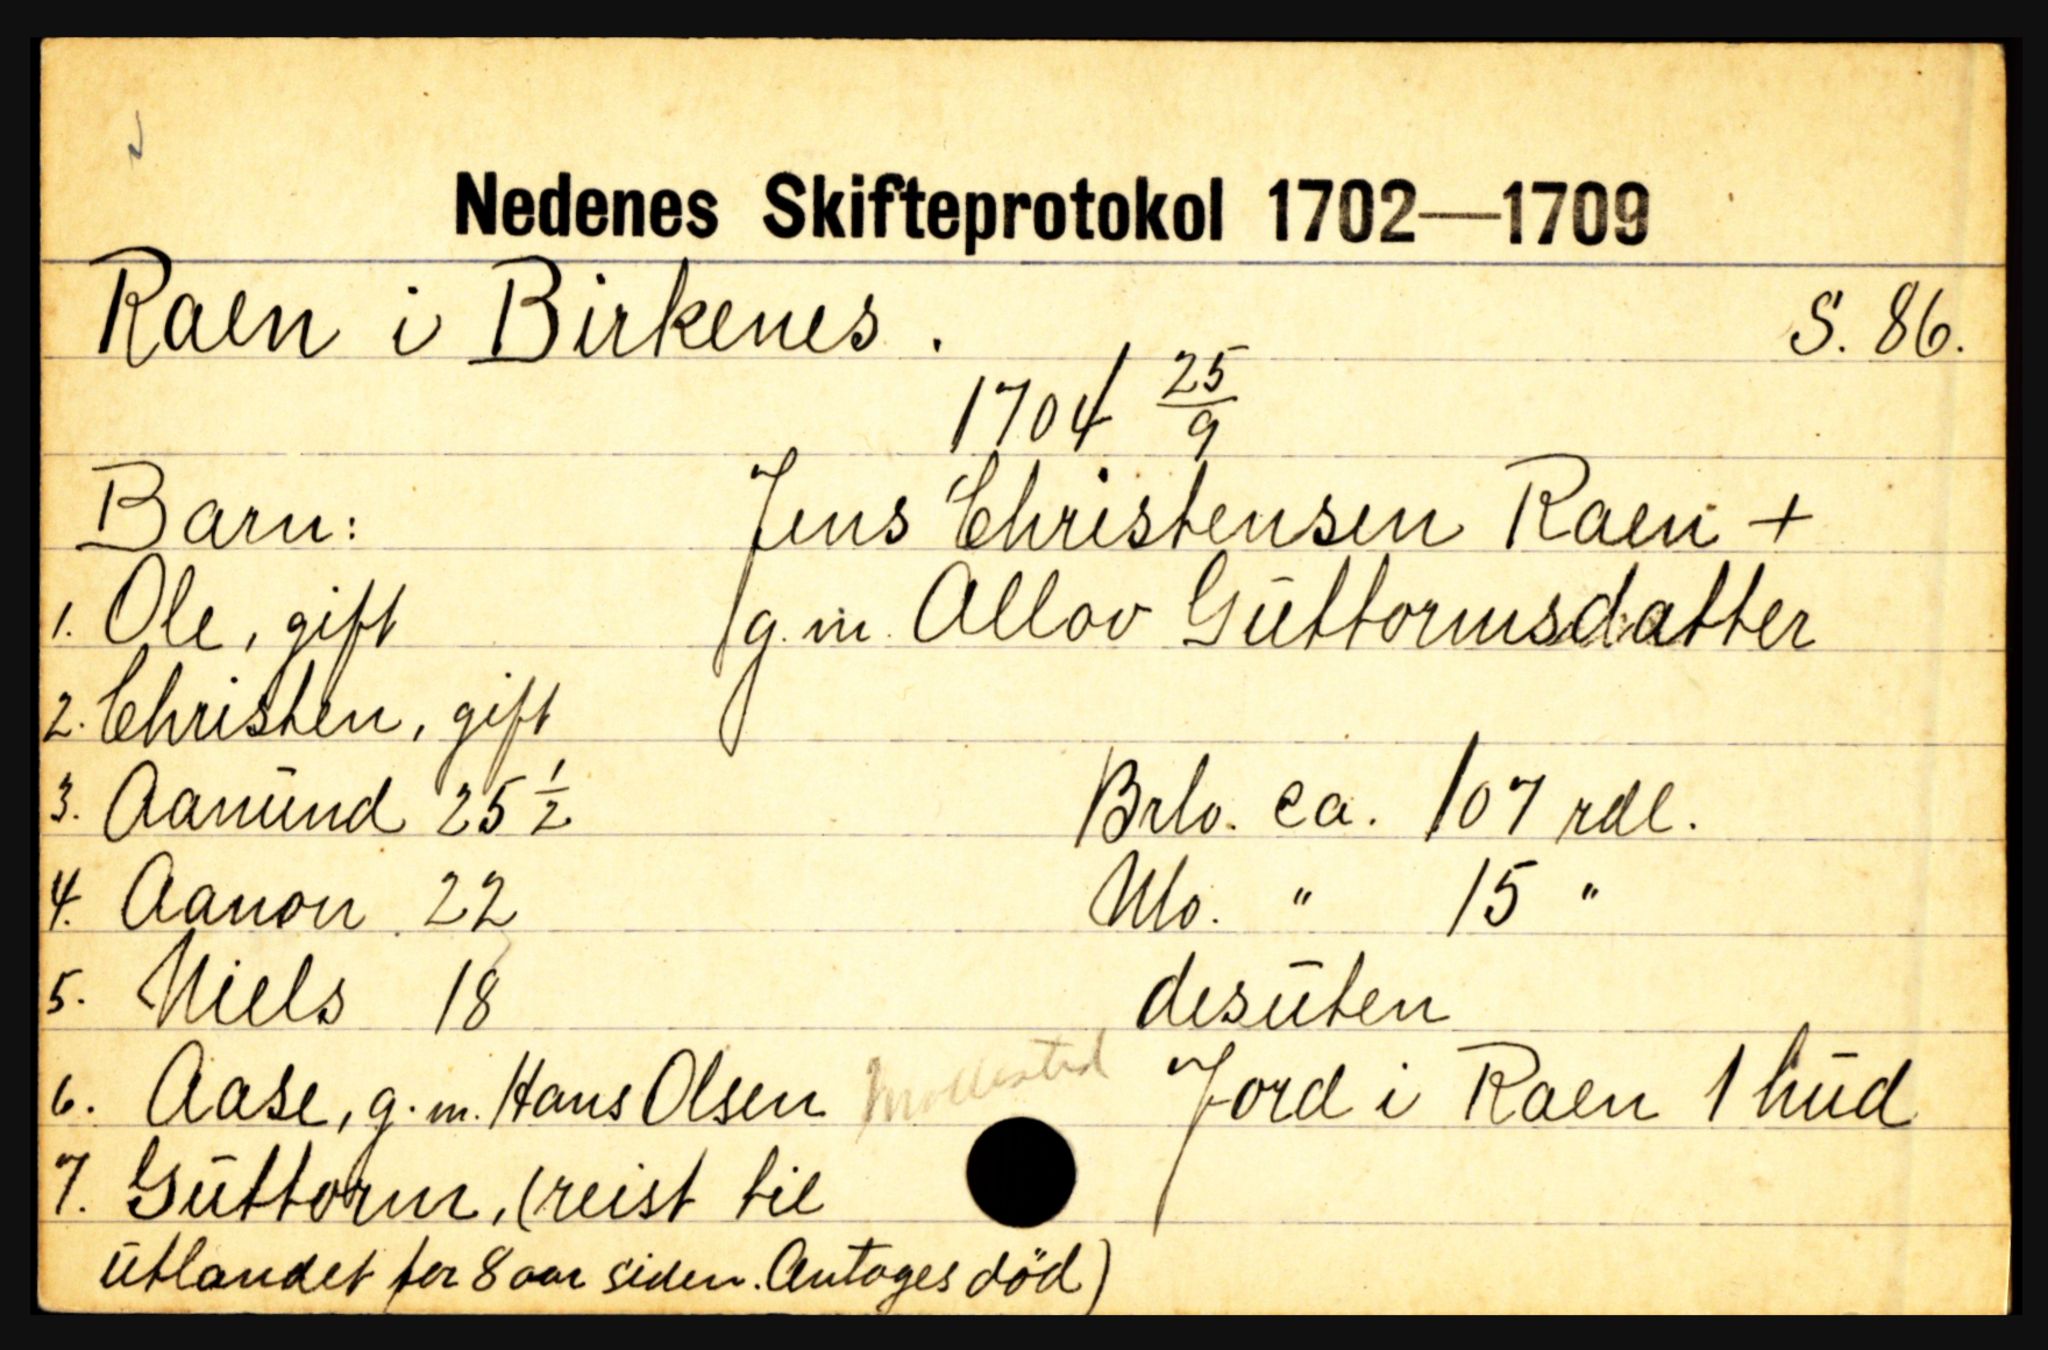 Nedenes Skifteprotokol 1702—1709
Raen i Birkenes. S. 86.
1704 25/9
Barn: Jens Christensen Raen +
1. Ole, gift g.m. Allov Guttormsdatter
2. Christen, gift
3. Aanund 25 1/2 Brlo. ca. 107 rdl.
4. Aanon 22 Nlo. " 15 "
5. Niels 18 desuten
6. Aase, g.m. Hans Olsen Mollestad Jord i Raen 1 hud
7. Guttorm, (reist til
utlandet for 8 aar siden. Antages död)